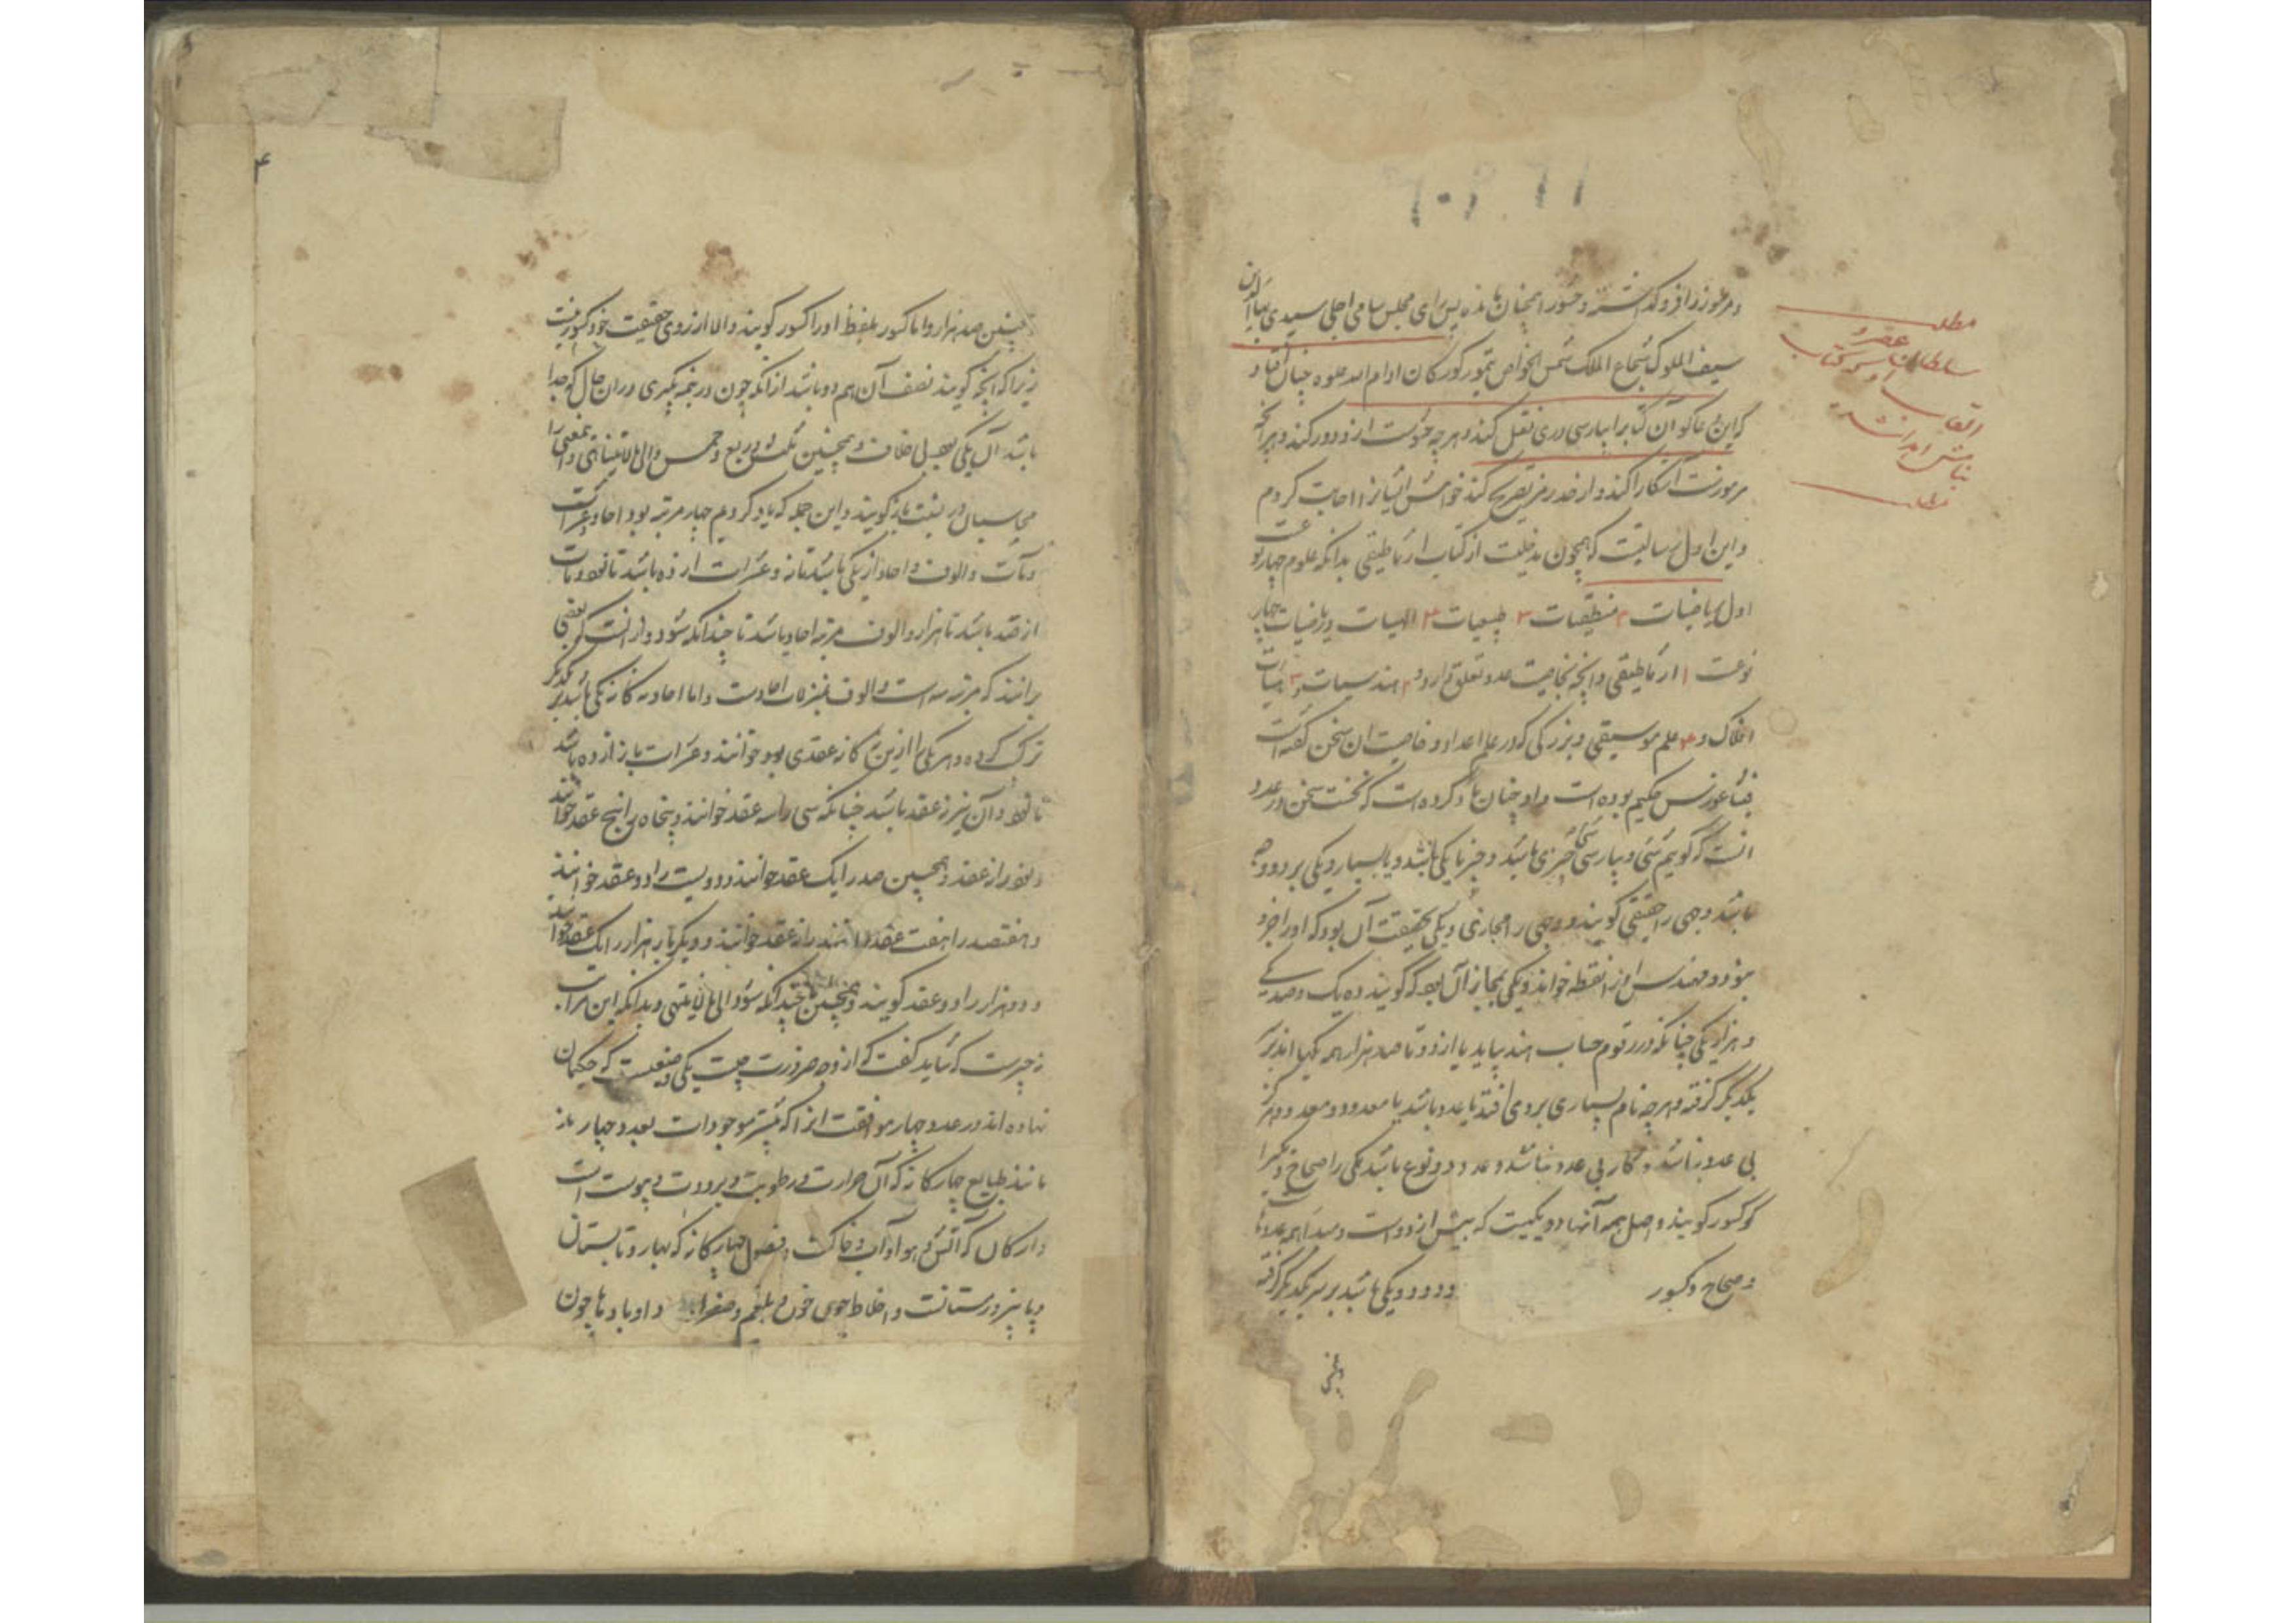 و مرموز را فرو گذاشته و حشو را همچنان مانده پس رای مجلس سامی اجلی سیدی بهاء الدین
سیف الملوک شجاع الملک شمس الخواص تیمور کورکان ادام الله علوه چنان اقتضا
که این دعاگو آن کتاب را بپارسی دری نقل کند و هر چه حشوست ازو دور کند و هرانچه
مرموزست آشکارا کند و از خود رمز تصریح کند خواهش ایشانرا اجابت کردم
و این اول رسالیست که همچون مدخلیست از کتاب ارثماطیقی بدانکه علوم چهار نوعست
اول ریاضیات ۲ منطقیات ۳ طبیعیات ۴ الهیات و ریاضیات چهار
نوعست ۱ ارثماطیقی و آنچه بخاصیت عدد تعلق دارد و ۲ هندسیات و ۳ هیئات
افلاک و ۴ علم موسیقی و بزرگی که در علم اعداد و خاصیت آن سخن گفته است
فیثاغورس حکیم بوده است و او چنان یاد کرده است که نخست سخن در عدد
آنست که گوییم شیٔ و بپارسی شیٔ چیزی باشد و چیز یا یکی باشد و یا بسیار و یکی بر دو وجه
باشد وجهی را حقیقی گویند و وجهی را مجازی و یکی بحقیقت آن بود که او را جزو
نبود و مهندس او را نقطه خواند و یکی بمجاز آن بود که گویند ده یک و صد یکی
و هزار یکی چنانکه در رقوم حساب هند بیاید یا از دو تا صد هزار همه یکها اند بر
یکدیگر گرفته و هر چه نام بسیاری برو می افتد یا عدد باشد یا معدود و معدود هرگز
بی عدد نباشد و کار بی عدد نباشد و عدد دو نوع باشد یکی را صحاح و دیگر را
کسور گویند و اصل همه آنها دو یکیست که پیش از دو است و مبدا همه عددها
و صحاح و کسور و دو دو یکی باشد بر سر یکدیگر گرفته
مطلب
سلطان عصر
القاب
مطلب
۴
همچنین صد هزار و اما کسور بلفظ او را کسور گویند والا از روی حقیقت خود کسور نیست
زیرا که آنچه گویند نصف آن هم دو باشد از آنکه چون در نیمه بگیری در آن حال که جدا
باشد آن یکی بود بی خلاف و همچنین ثلث و ربع و خمس و الی ما لایتناهی و این معنی را
محاسبان در نسبت باز گویند و این جمله که یاد کردیم چهار مرتبه بود آحاد و عشرات
و مآت و الوف و آحاد از یکی باشد تا نه و عشرات از ده باشد تا نود و مآت
از صد باشد تا نهصد و الوف مرتبه آحاد باشد تا چندانکه شود و از انست که بعضی
برانند که مرتبه سه است و الوف بمنزلت آحادست و اما آحاد نه گانه یکی باشد بر یکدیگر
ترکیب کرده و هر یکی را ازین نه گانه عقدی بود خوانند و عشرات باز از ده باشد
تا نود و آن نیز نه عقد باشد چنانکه سی را سه عقد خوانند و پنجاه را پنج عقد خوانند
و نود را نه عقد و همچنین صد را یک عقد خوانند و دویست را دو عقد خوانند
و هفتصد را هفت عقد و نهصد را نه عقد خوانند و دیگر بار هزار را یک عقد خوانند
و دو هزار را دو عقد گویند و همچنین چندانکه شود الی ما لایتناهی و بدانکه این مراتب
نه چیزیست که شاید گفت که از وجه ضرورت چنین است یکی وضعیست که حکیمان
نهاده اند در عدد چهار موافقت آنرا که بیشتر موجودات بعدد چهار باز
مانند طبایع چهارگانه که آن حرارت و رطوبت و برودت و یبوست است
و ارکان که آتش و هوا و آب و خاکست و فصول چهارگانه که بهار و تابستان
و پاییز و زمستانست و اخلاط چون خون و بلغم و صفرا و بادها چون